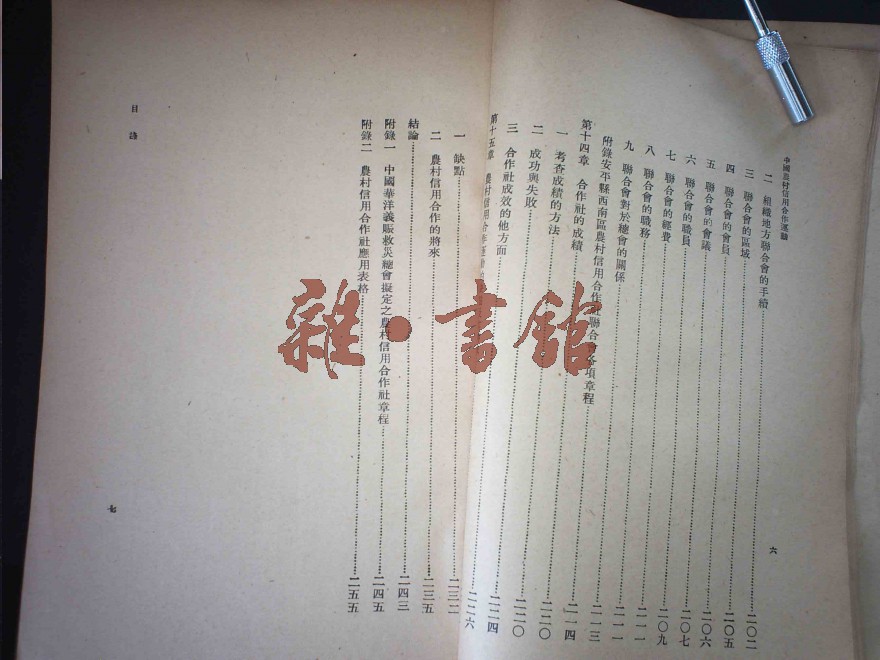 中國農村信用合作運動
二 組織地方聯合會的手續…………二〇二
三 聯合會的區域…………二〇五
四 聯合會的會員…………二〇六
五 聯合會的會議…………二〇七
六 聯合會的職員…………二〇九
七 聯合會的經費…………二一一
八 聯合會的職務…………二一一
九 聯合會對於總會的關係…………二一三
附錄安平縣西南區農村信用合作社聯合會各項章程
第十四章 合作社的成績…………二一四
一 考查成績的方法…………二二〇
二 成功與失敗…………二二〇
三 合作社成效的他方面…………二二四
第十五章 農村信用合作運動…………二二六
一 缺點…………二三二
二 農村信用合作的將來…………二三五
結論…………二四三
附錄一 中國華洋義賑救災總會擬定之農村信用合作社章程…………二四五
附錄二 農村信用合作社應用表格…………二五五
六
目錄
七
雜·書館